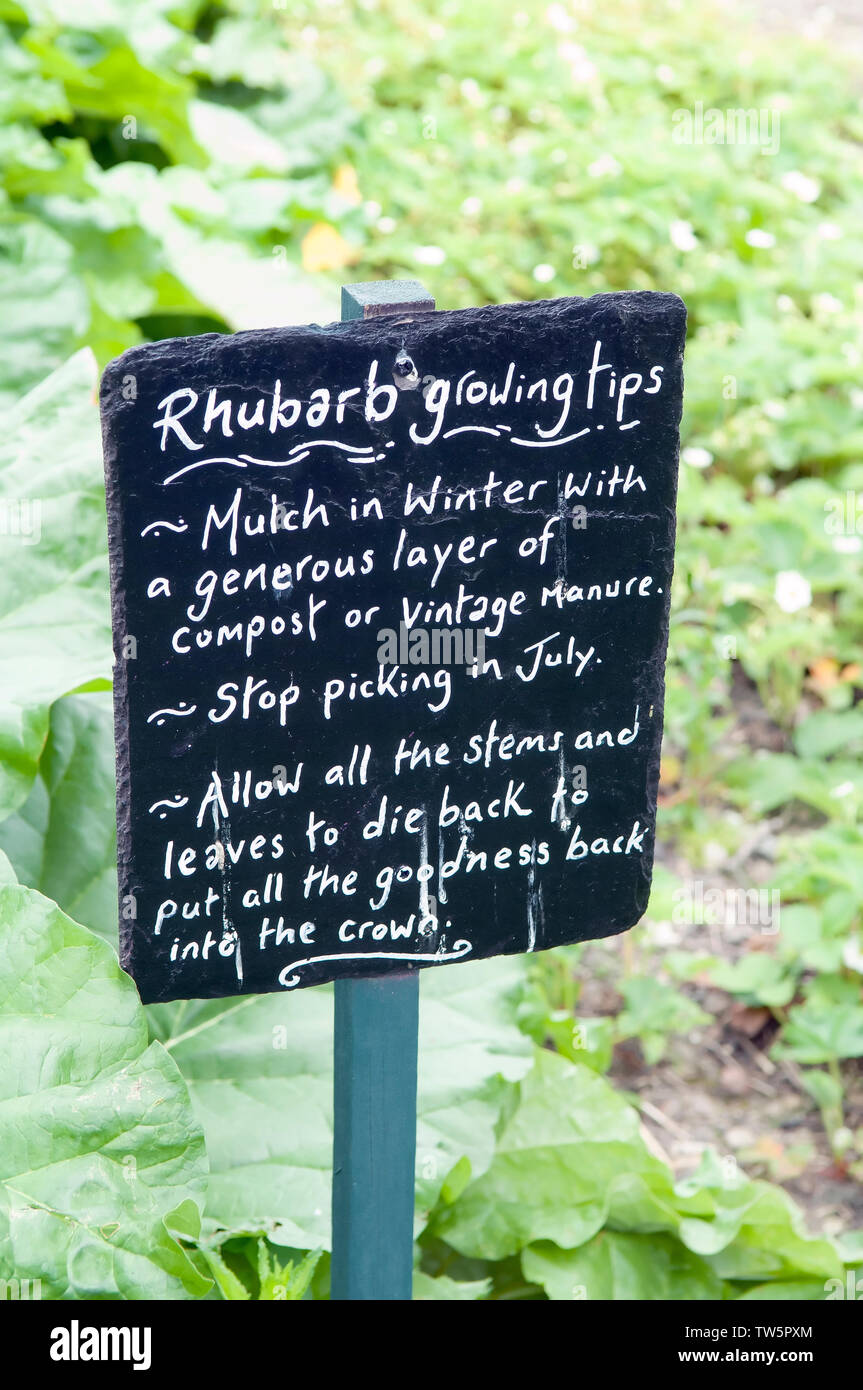 Rhubarb growing tips
~ Mulch in Winter with
a generous layer of
compost or vintage manure.
~ Stop picking in July.
~ Allow all the stems and
leaves to die back to
put all the goodness back
into the crown.
alamy
Image ID: TW5PXM
www.alamy.com